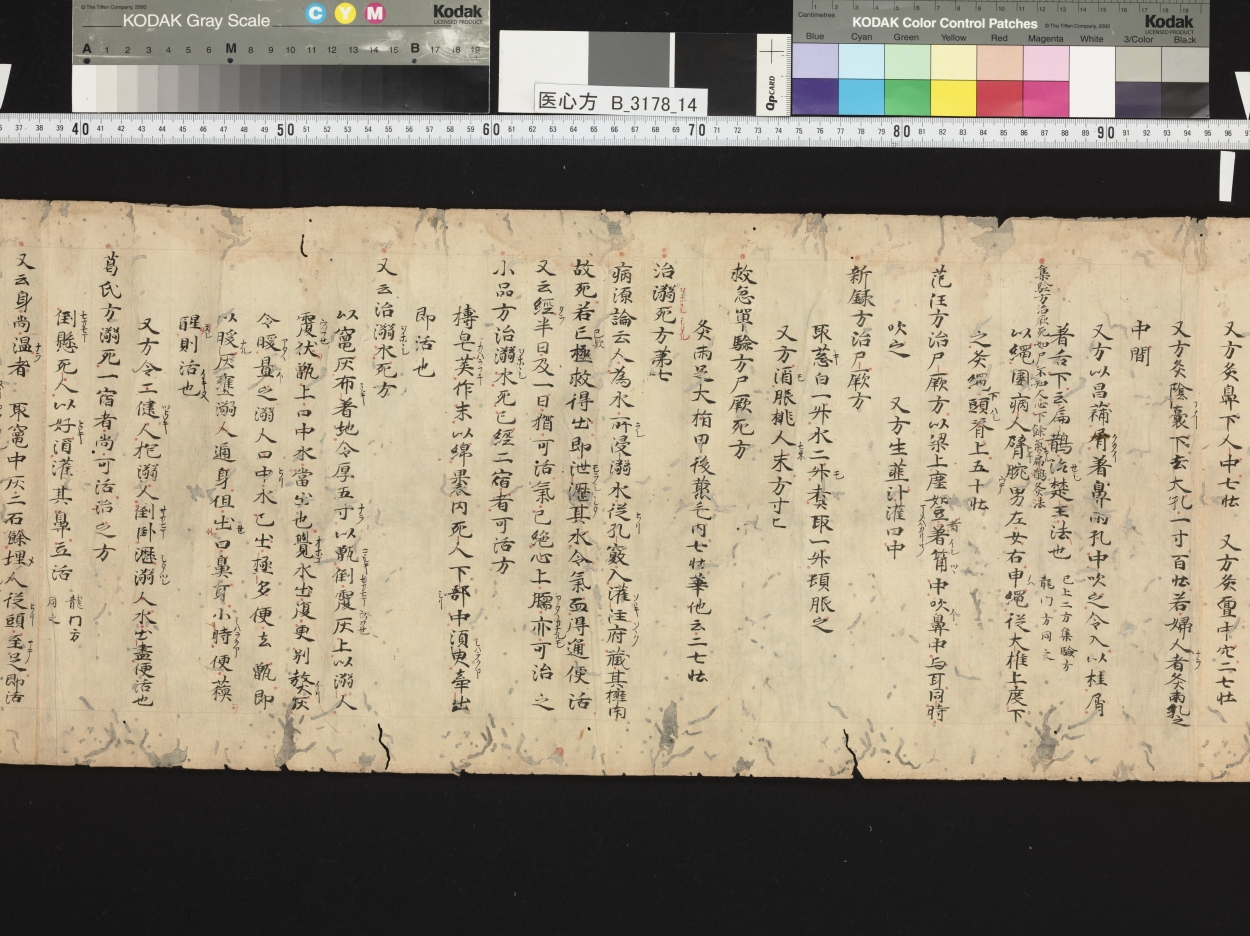 © The Tiffen Company, 2000
KODAK Gray Scale
C Y M
Kodak
LICENSED PRODUCT
A 1 2 3 4 5 6 M 8 9 10 11 12 13 14 15 B 17 18 19
医心方 B_3178_14
QPCARD
Centimetres
KODAK Color Control Patches
© The Tiffen Company, 2000
Kodak
LICENSED PRODUCT
Blue Cyan Green Yellow Red Magenta White 3/Color Black
37 38 39 40 41 42 43 44 45 46 47 48 49 50 51 52 53 54 55 56 57 58 59 60 61 62 63 64 65 66 67 68 69 70 71 72 73 74 75 76 77 78 79 80 81 82 83 84 85 86 87 88 89 90 91 92 93 94 95 96
又方灸鼻下人中七壮 又方灸亶中穴二七壮
又方灸陰囊下去大孔一寸百壮若婦人者灸兩乳之
中間
又方以昌蒲屑著鼻兩孔中吹之令入以桂屑
著舌下云扁鵲治楚王法也 已上二方集驗方 龍门方同之
以繩圍病人臂腕男左女右申繩從大椎上度下
之灸繩頭脊上五十壮
范汪方治尸厥方以梁上塵如豆著筩中吹鼻中与耳同時
吹之 又方生薤汁灌口中
新録方治尸厥方
取葱白一升水二升煮取一升頓服之
又方酒服桃人末方寸匕
救急單驗方尸厥死方
灸兩足大栺甲後藂毛内七壮華他云二七壮
治溺死方第七
病源論云人為水所浸溺水従孔竅入灌注府蔵其擁閇
故死若已極救得出即泄瀝其水令氣血得通便活
又云經半日及一日猶可活氣已絶心上煗亦可治之
小品方治溺水死已經二宿者可活方
搗皁莢作末以綿裹内死人下部中須臾牽出
即活也
又云治溺水死方
以竈灰布著地令厚五寸以甑倒覆灰上以溺人
覆伏甑上口中水當出也覺水出復更別熬灰
令暖置之溺人口中水已出極多便去甑即
以暖灰壅溺人通身但出口鼻耳小時便蘇
醒則活也
又方令二健人抱溺人倒卧瀝溺人水出盡便活也
葛氏方溺死一宿者尚可活治之方
倒懸死人以好酒灌其鼻立活 龍门方同之
又云身尚温者 取竈中灰二石餘埋人従頭至足即活